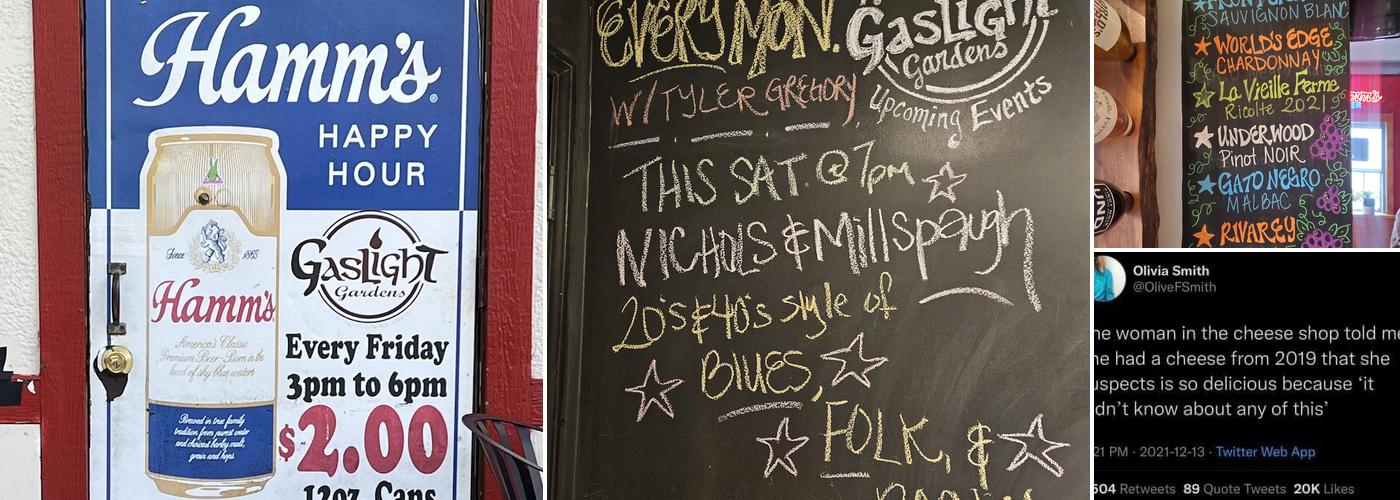 Hamm's
HAPPY
HOUR
Since 1865
Hamm's
America's Classic
Premium Beer-Born in the
land of sky blue waters
Brewed in true family
tradition from purest water
and choicest barley malt,
grain and hops.
GasLight
Gardens
Every Friday
3pm to 6pm
$2.00
12oz. Cans
EVERY MON.
W/ TYLER GREGORY
GasLight
Gardens
Upcoming Events
THIS SAT. @ 7pm
NICHOLS & Millspaugh
20's & 40's style of
BLUES,
FOLK, &
SAUVIGNON BLANC
WORLD'S EDGE
CHARDONNAY
La Vieille Ferme
Ricolte 2021
UNDERWOOD
Pinot NOIR
GATO NEGRO
MALBAC
RIVAREY
Olivia Smith
@OliveFSmith
he woman in the cheese shop told me
he had a cheese from 2019 that she
uspects is so delicious because 'it
dn't know about any of this'
21 PM · 2021-12-13 · Twitter Web App
504 Retweets 89 Quote Tweets 20K Likes